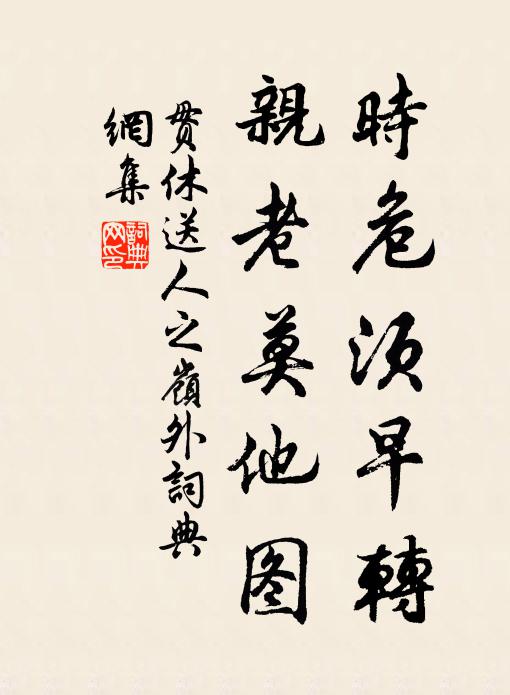 時危須早轉
親老莫他图
贯休送人之嶺外詞典
網集
詞典
网印